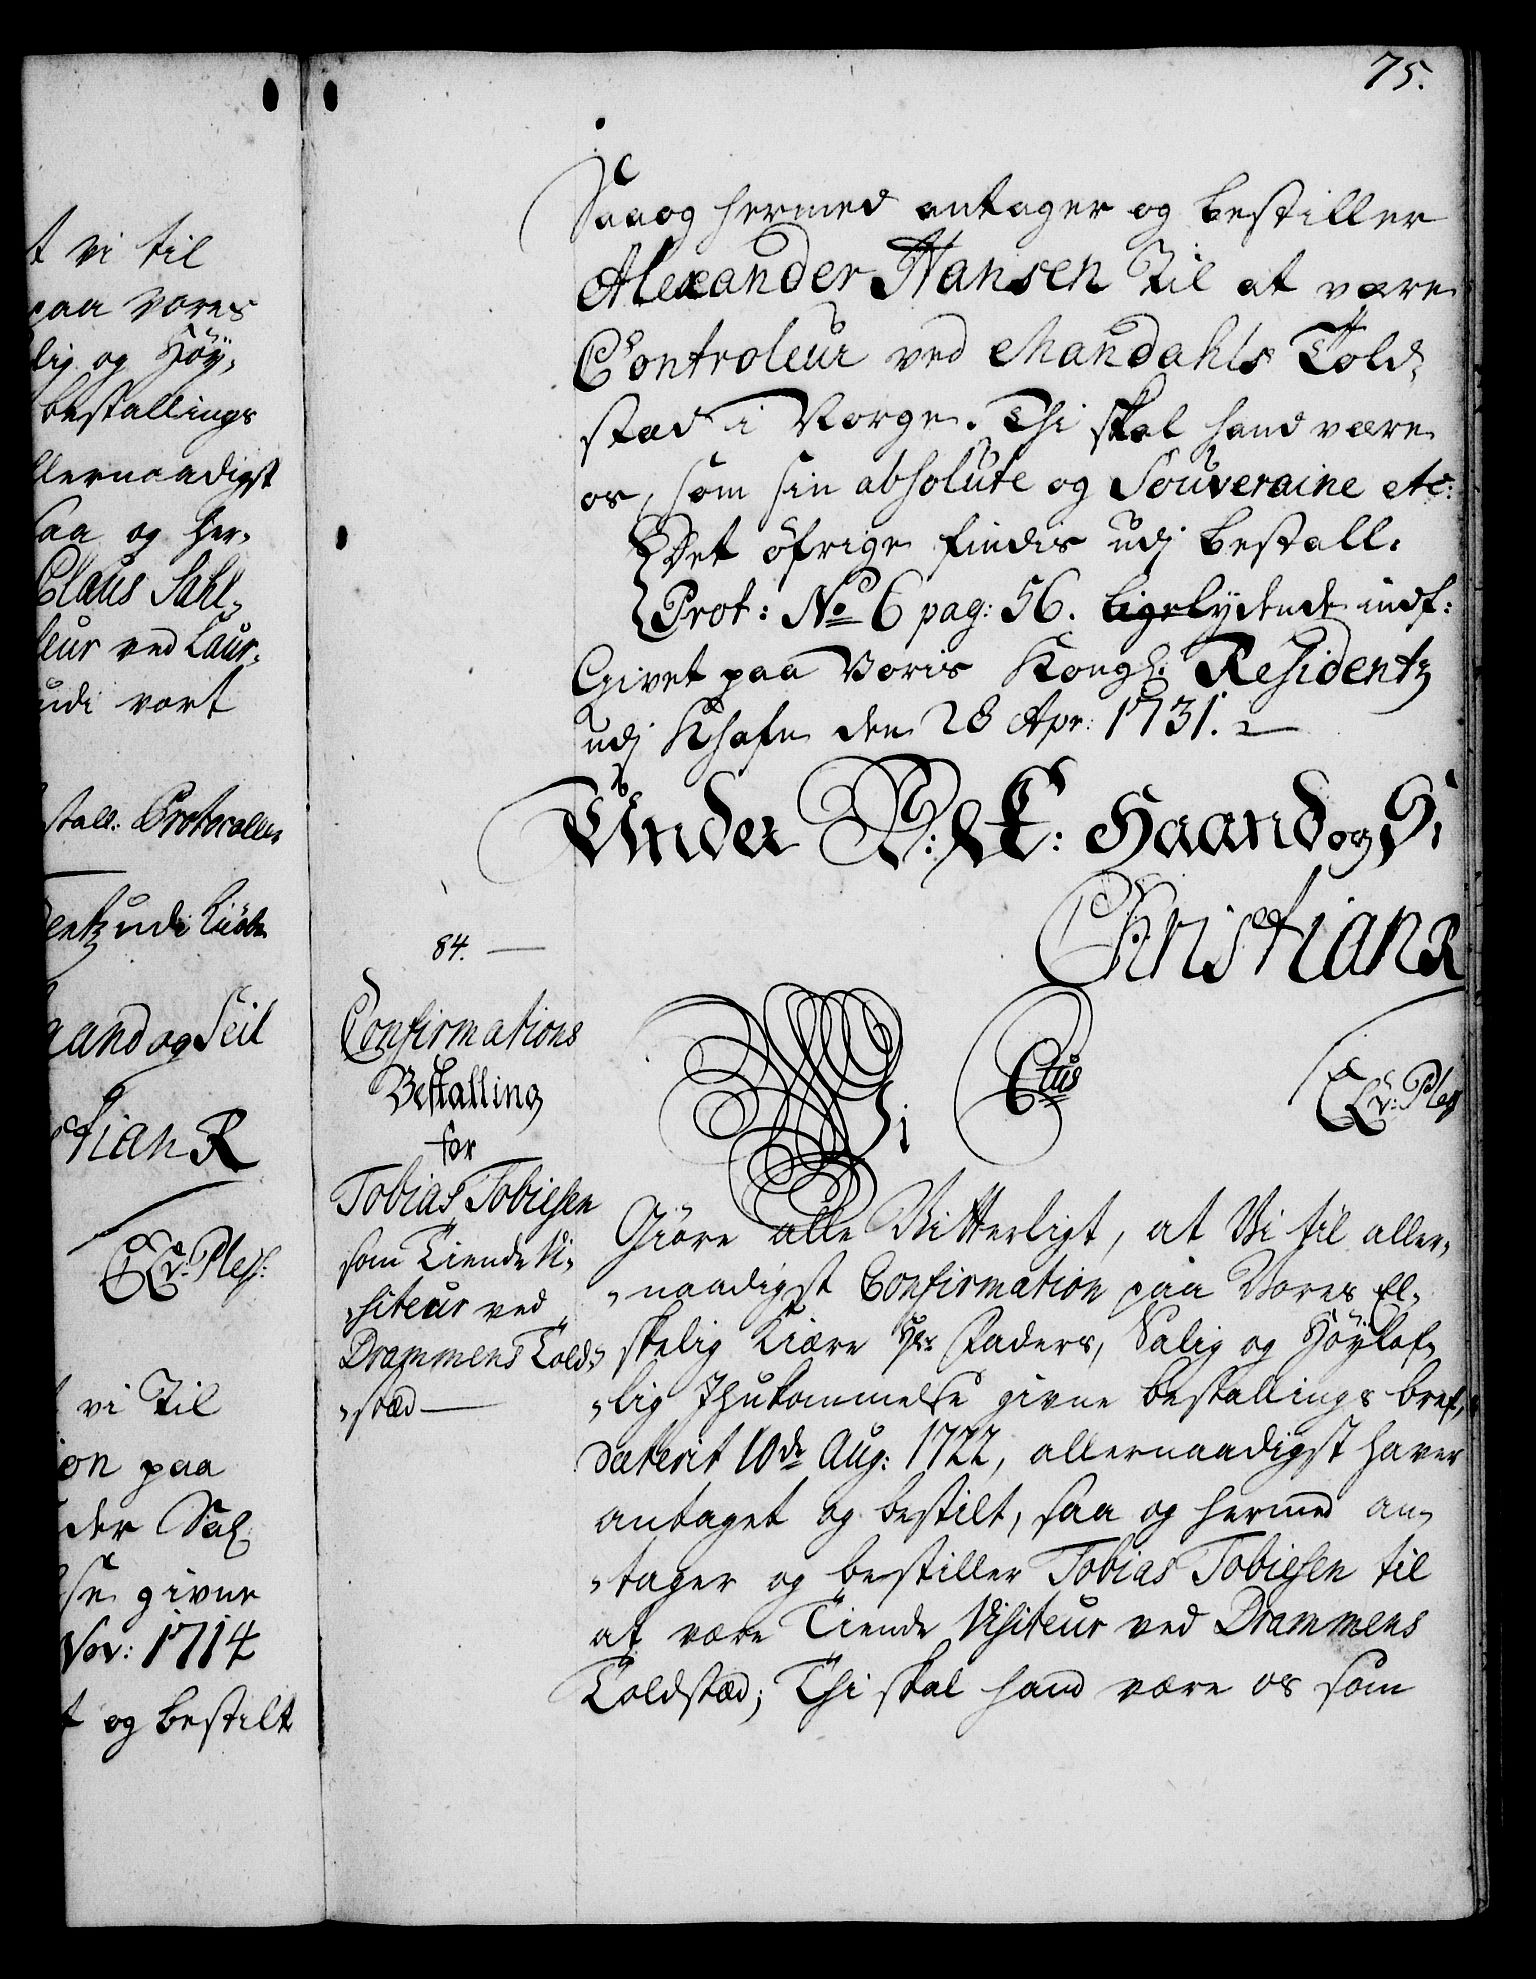 t vi til
paa Vores
lig og Høy-
bestallings
llernaadigst
saa og her-
Claus Sahl-
leur ved Laur-
udi vort
stall: Protocollen
dentz udi Kiøb
aand og Seil
stian R
C. A. v: Pless:
vi Til
on paa
der Sal
se givne
Nov: 1714
t og bestilt
75.
Saa og hermed antager og bestiller
Alexander Hansen til at være
Controleur ved Mandahls Told-
stæd i Norge. Thi skal hand være
os, som sin absolute og Souveraine etc:
Det öfrige findis udj bestall:
Prot: No 6 pag: 56. ligelydende indf:
Givet paa Voris Kongl: Residentz
udj Khafn den 28 Apr: 1731.
Under V: K: Haand og S:
Christian R
84.
Confirmations
Bestalling
for
Tobias Tobiesen
som Tiende Vi-
-siteur ved
Drammens Told-
-stæd
Wi Ctus
v: Pless
Giøre alle Vitterligt, at Vi til aller-
-naadigst Confirmation paa Vores El-
skelig Kiære Hr Faders, Salig og Höylof-
-lig Ihukommelse givne bestallings bref,
Daterit 10de Aug: 1722, allernaadigst haver
antaget og bestilt, saa og hermed an-
-tager og bestiller Tobias Tobiesen til
at være Tiende Visiteur ved Drammens
Toldstæd; Thi skal hand være os som